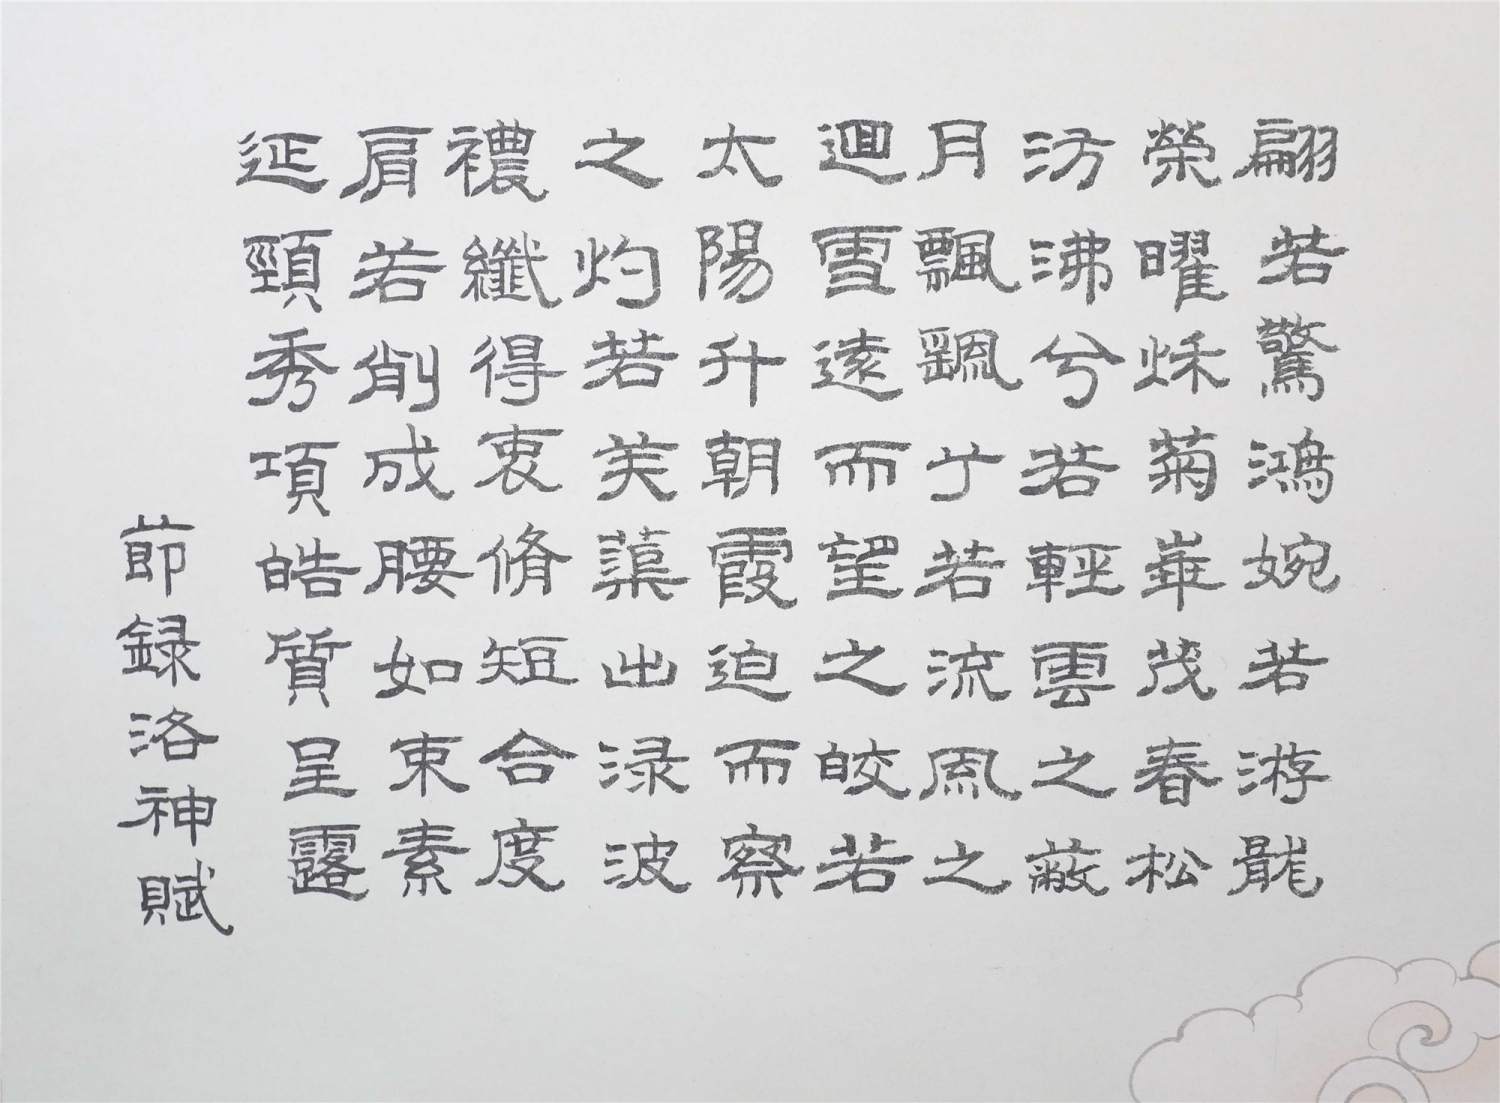 翩若驚鴻婉若游龍
榮曜秌菊華茂春松
汸沸兮若輕雲之蔽
月飄飖兮若流風之
迴雪遠而望之皎若
太陽升朝霞迫而察
之灼若芙蕖出淥波
襛纖得衷脩短合度
肩若削成腰如束素
延頸秀項皓質呈露
節録洛神賦